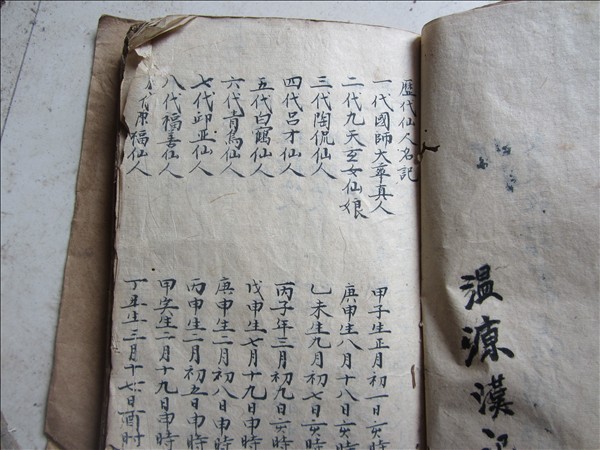 歷代仙人名記
一代國師大率真人
二代九天玄女仙娘
三代陶侃仙人
四代吕才仙人
五代白鶴仙人
六代青烏仙人
七代邱亚仙人
八代福善仙人
福仙人
甲子生正月初一日亥時
庚申生八月十八日亥時
乙未生九月初七日亥時
丙子年三月初九日亥時
戊申生七月十九日申時
庚申生二月初八日申時
丙申生二月初五日申時
甲寅生二月十九日申時
丁丑生三月十七日酉時
温源漢記